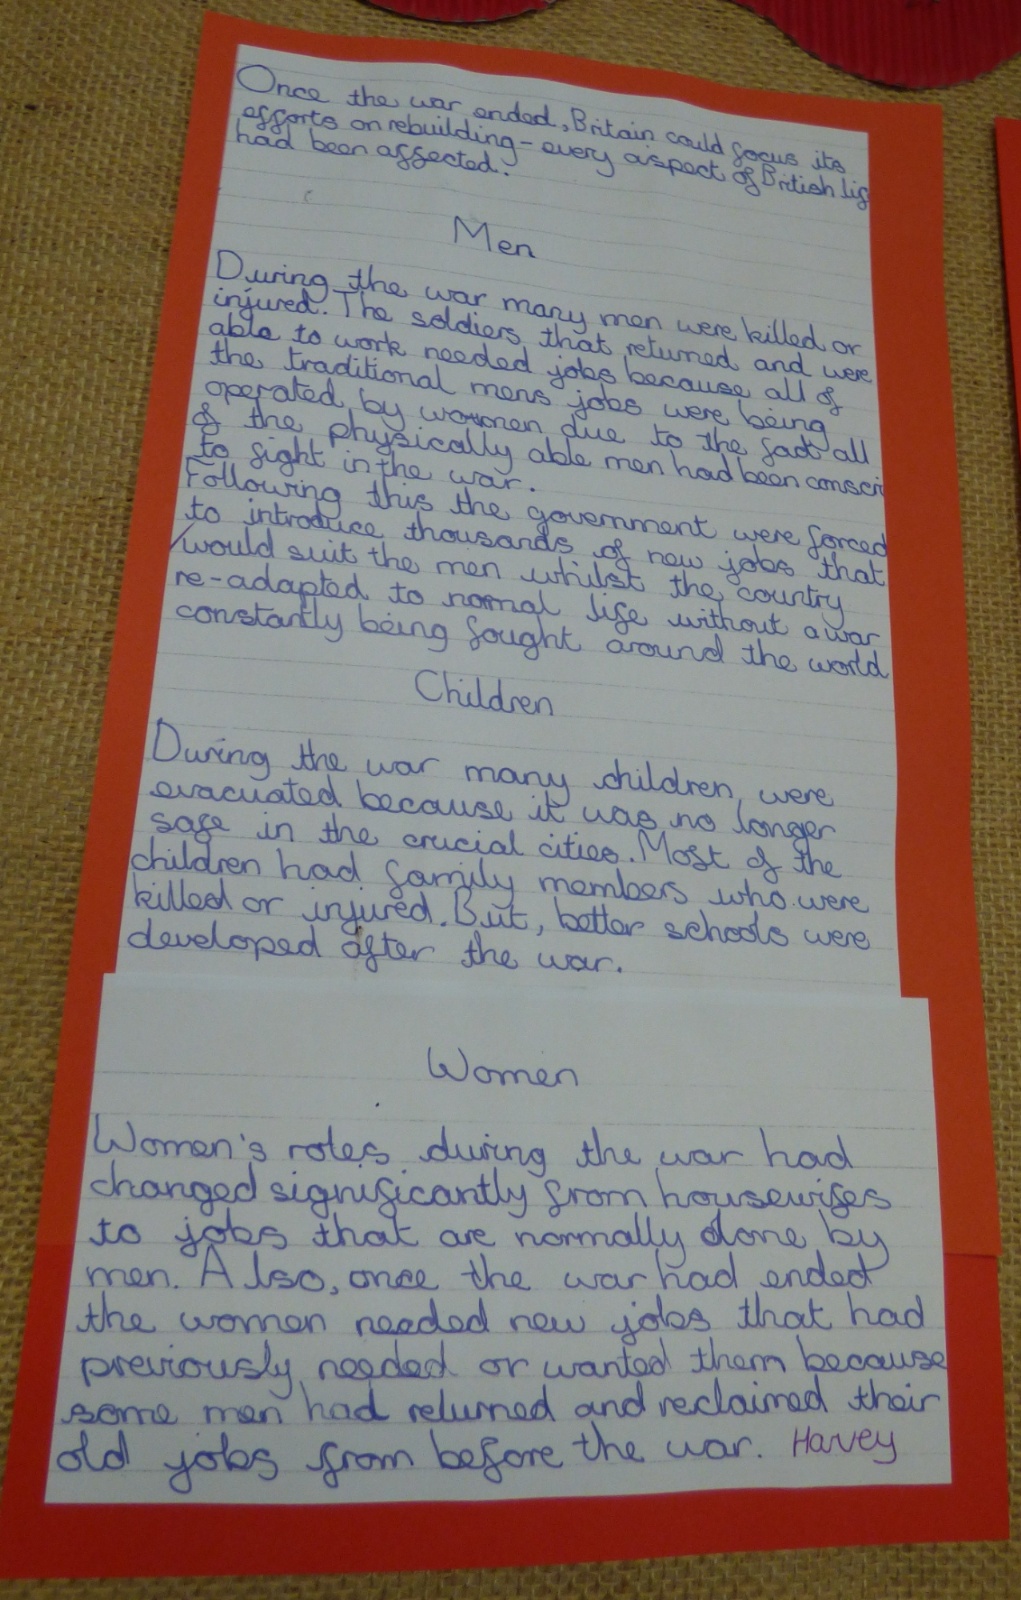 Once the war ended, Britain could focus its
efforts on rebuilding - every aspect of British lif
had been affected.
Men
During the war many men were killed or
injured. The soldiers that returned and were
able to work needed jobs because all of
the traditional mens jobs were being
operated by women due to the fact all
of the physically able men had been conscri
to fight in the war.
Following this the government were forced
to introduce thousands of new jobs that
would suit the men whilst the country
re-adapted to normal life without a war
constantly being fought around the world
Children
During the war many children were
evacuated because it was no longer
safe in the crucial cities. Most of the
children had family members who were
killed or injured. But, better schools were
developed after the war.
Women
Women's roles during the war had
changed significantly from housewifes
to jobs that are normally done by
men. Also, once the war had ended
the women needed new jobs that had
previously needed or wanted them because
some men had returned and reclaimed their
old jobs from before the war. Harvey